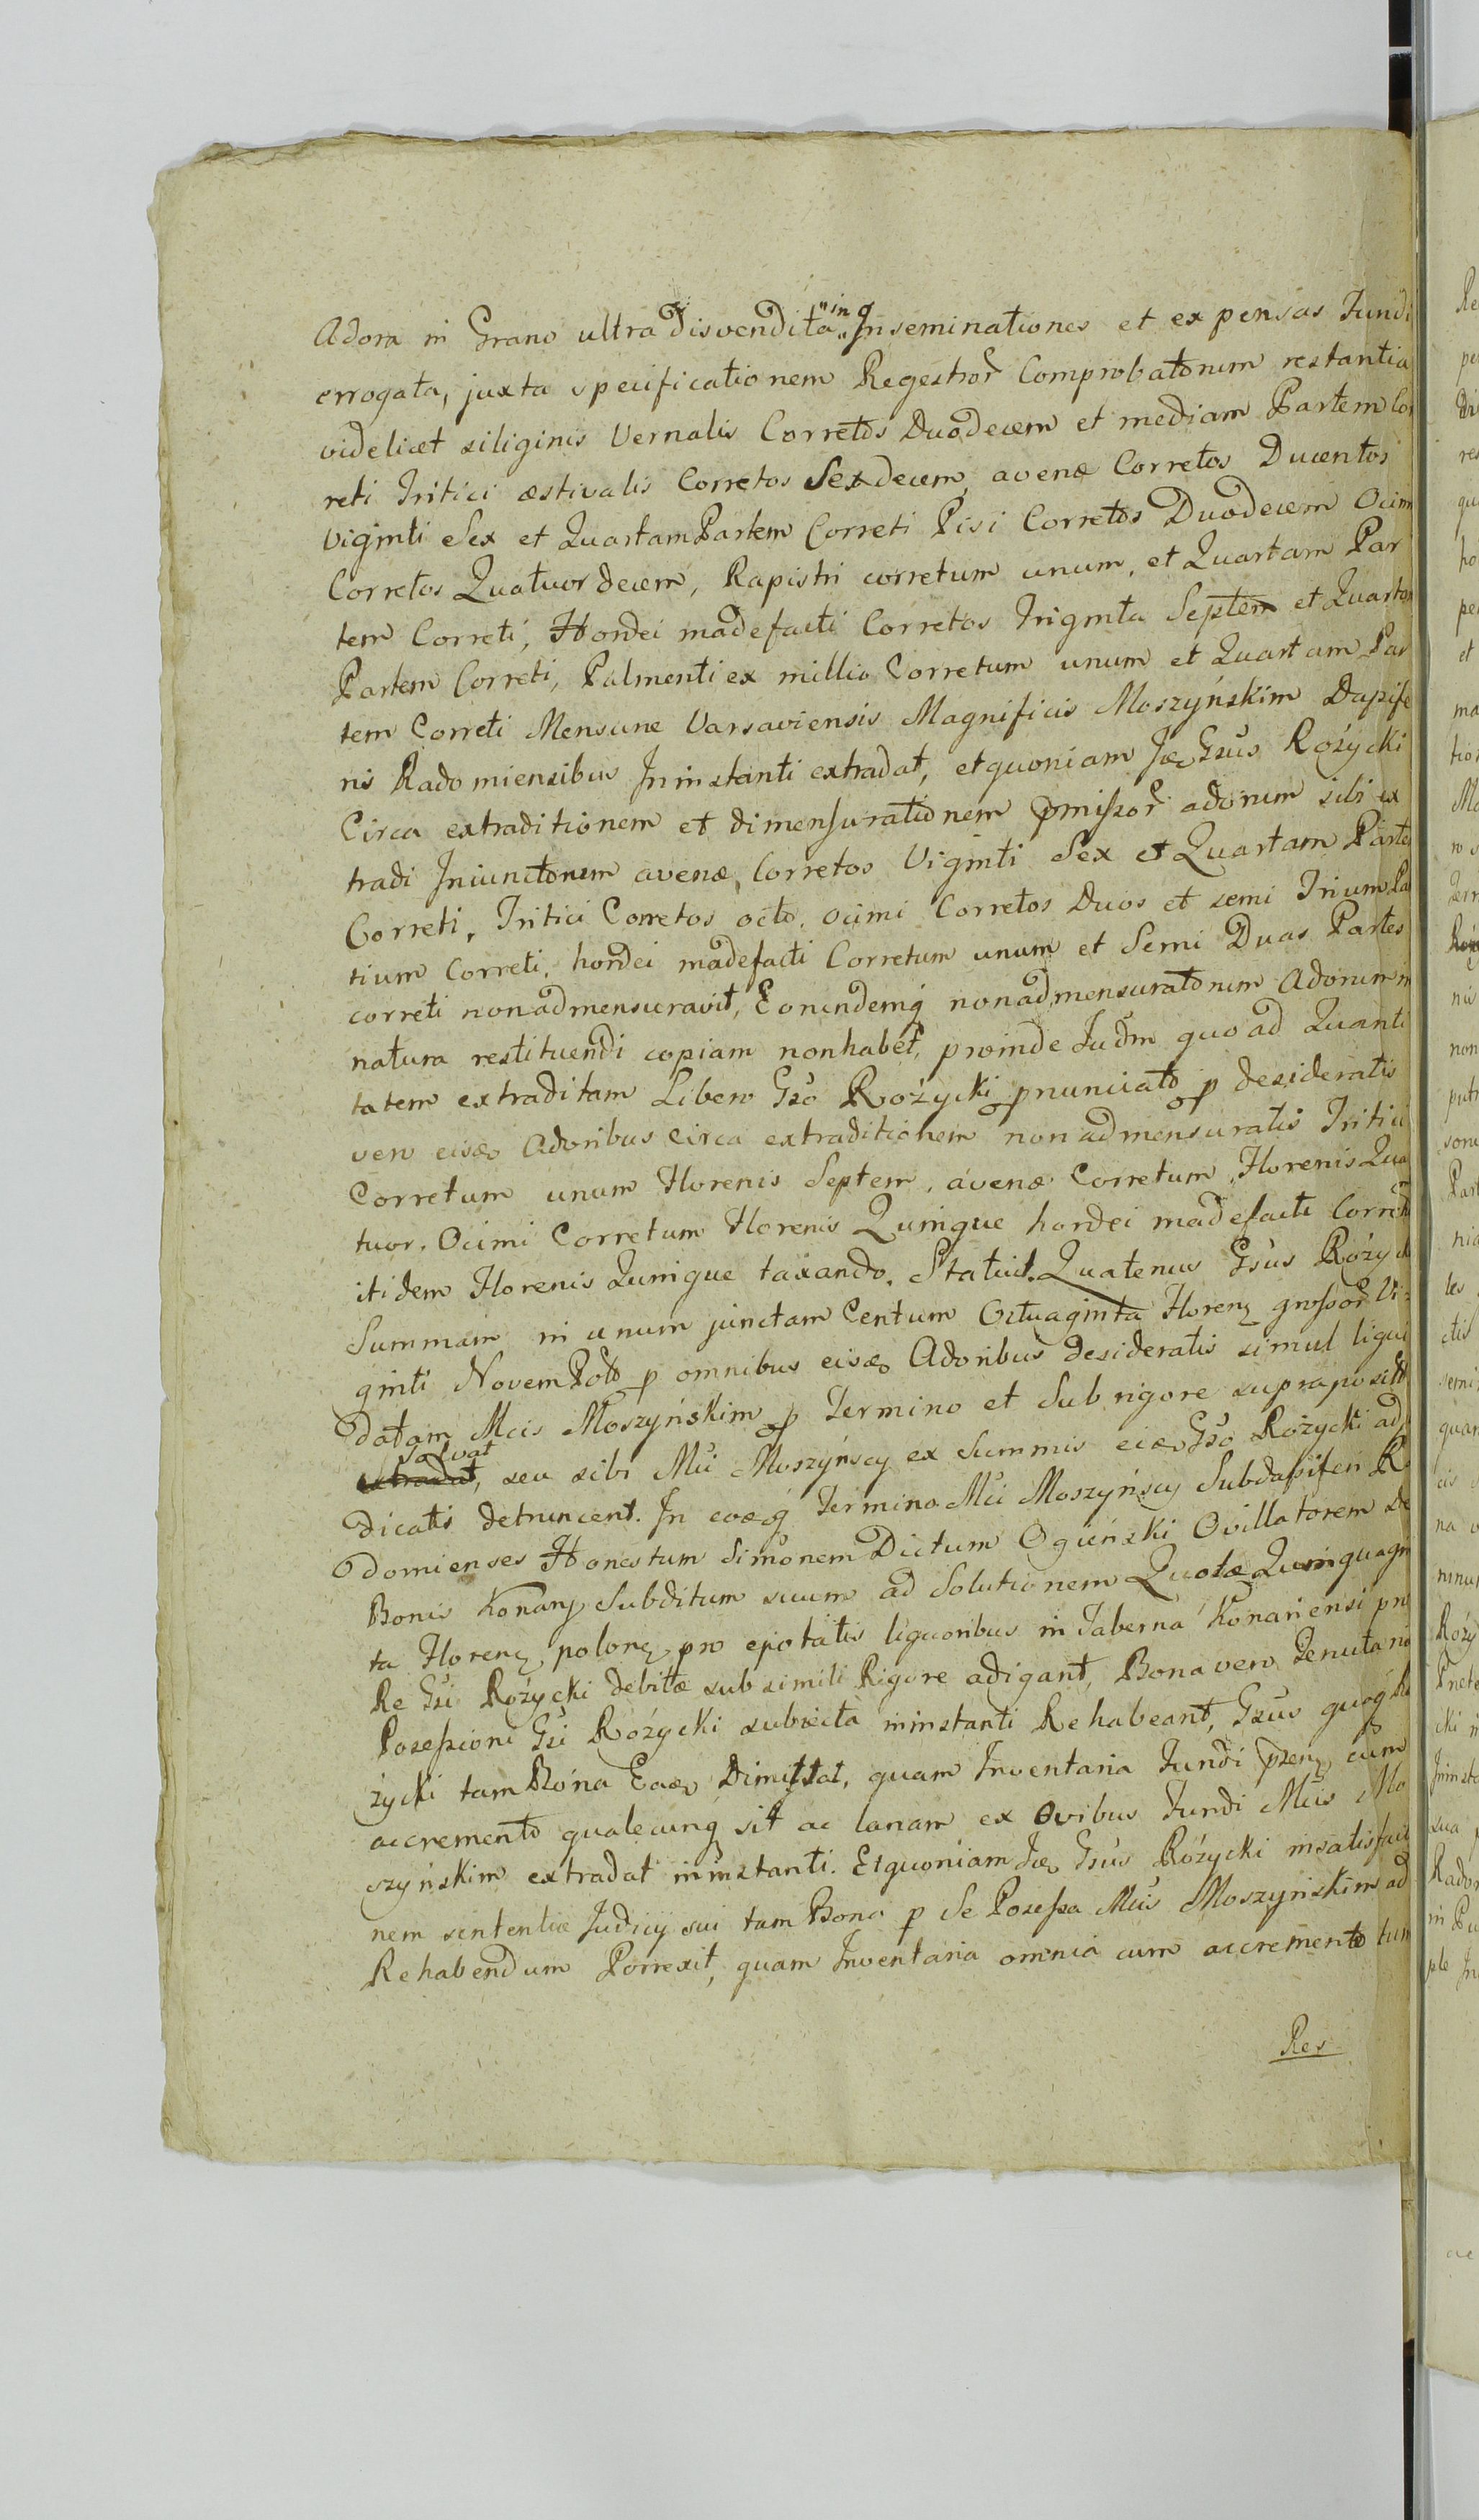 Adora in Grano ultra disvendita "in" Inseminationes et expensas Fundi
errogata, juxta specificationem Regestror Comprobatorum restantia
videlicet siliginis Vernalis Corretos Duodecem et mediam Partem Cor
reti Tritici æstivalis Corretos Sexdecem, avenæ Corretos Ducentos
Viginti Sex et Quartam Partem Correti Pisi Corretos Duodecem Ocimi
Corretos Quatuordecem, Rapistri corretum unum, et Quartam Par
tem Correti, Hordei madefacti Corretos Triginta Septem et Quartam
Partem Correti, Pulmenti ex millio Corretum unum et Quartam Par
tem Correti Mensuræ Varsaviensis Magnificis Moszyńskim Dapife
ris Radomiensibus Ininstanti extradat, et quoniam Jæ Gsus Rożycki
Circa extraditionem et dimensurationem pmissor adorum sibi ex
tradi Iniunctorum avenæ, Corretos Viginti Sex et Quartam Parte
Correti, Tritici Corretos octo, ocimi Corretos Duos et semi Trium Pa
tium Correti, hordei madefacti Corretum unum et Semi Duas Partes
correti non admensuravit, Eorundemq nonadmensuratorum Adorum in
natura restituendi copiam nonhabet, proinde Judm quo ad Quanti
tatem extraditam Libero Gso Rożycki pnunciato p desideratis
vero eisæ Adoribus circa extraditionem non admensuratis Tritici
Corretum unum Florenis Septem, avenæ Corretum, Florenis Qua
tuor. Ocimi Corretum Florenis Quinque hordei madefacti Corret
itidem Florenis Quinque taxando. Statuit. Quatenus Gsus Rożycki
Summam in unum junctam Centum Octuaginta Floren grossor Vi
ginti Novem Polo p omnibus eisæ Adoribus desideratis simul liqui
datam Mcis Moszyńskim p Termino et Sub rigore supraposito
Solvat
extradat, seu sibi Mci Moszyńscy ex Summis eiæ Gso Rożycki ad
dicatis detruncent. In eoæq Termino Mci Moszyńscy Subdapiferi R
domienses Honestum Simonem Dictum Ogieński Ovillatorem De
Bonis Konary Subditum suum ad Solutionem Quotæ Quinquagin
ta Floren polon pro epotatis liquoribus in Taberna Konariensi pro
Re Gsi Rożycki debitæ sub simili Rigore adigant, Bona vero Tenuta
Posessioni Gsi Rożycki subiecta ininstanti Rehabeant, Gsus quoq Ro
życki tam Bona Eaæ Dimittat, quam Inventaria Fundi psen cum
accremento qualecunq sit ac lanam ex Ovibus Fundi Mcis Mo
szyńskim extradat ininstanti. Et quoniam Jæ Gsus Rożycki insatisfact
nem sententiæ Judicij sui tam Bona p Se Posessa Mcis Moszyńskim ad
Rehabendum Porrexit, quam Inventaria omnia cum accremento tum
Res